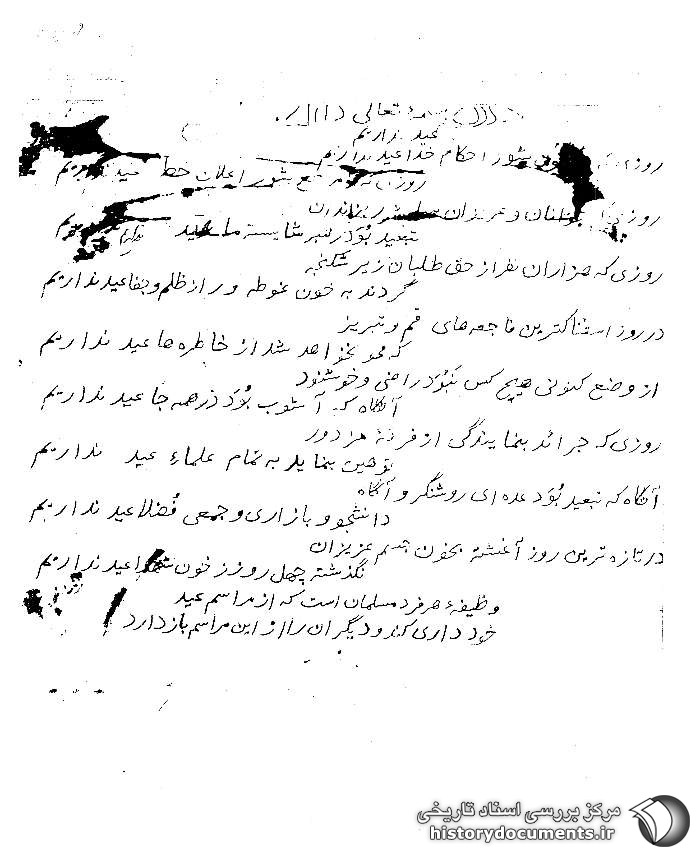 بسمه تعالی
عید نداریم
روزی که شود احکام خدا عید نداریم
روزی که شود اعلان خطر عید نداریم
روزی و عزیزان
تبعید بُوَد رهبر شایستهٔ ما عید نداریم
روزی که هزاران نفر از حق طلبان زیر شکنجه
گردند به خون غوطه ور از ظلم و جفا عید نداریم
در روز اسفناکترین فاجعه های قم و تبریز
که محو نخواهد شد از خاطره ها عید نداریم
از وضع کنونی هیچ کس نَبُوَد راضی و خوشنود
آنگاه که آشوب بُوَد در همه جا عید نداریم
روزی که جرائد بنمایندگی از فرقهٔ مزدور
توهین بنماید به تمام علماء عید نداریم
آنگاه که تبعید بُوَد عده ای روشنگر و آگاه
دانشجو و بازاری و جمعی فُضلا عید نداریم
در تازه ترین روز آغشته بخون جسم عزیزان
نگذشته چهل روز ز خون شهدا عید نداریم
وظیفهٔ هر فرد مسلمان است که از مراسم عید
خودداری کند و دیگران را از این مراسم باز دارد
مرکز بررسی اسناد تاریخی
historydocuments.ir